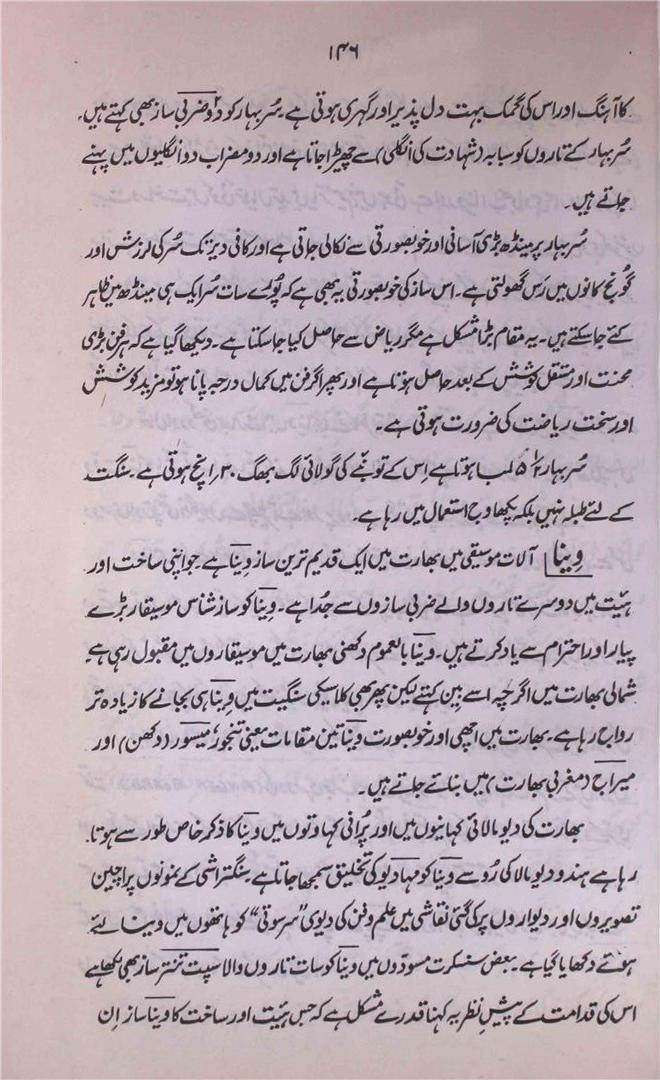 ۱۴۶
کا آہنگ اور اس کی گمک بہت دل پذیر اور گہری ہوتی ہے۔ سُر بہار کو دو ضربی ساز بھی کہتے ہیں۔
سُر بہار کے تاروں کو سبابہ (شہادت کی انگلی) سے چھیڑا جاتا ہے اور دو مضراب دو انگلیوں میں پہنے
جاتے ہیں۔
سُر بہار پر مینڈھ بڑی آسانی اور خوبصورتی سے نکالی جاتی ہے اور کافی دیر تک سُر کی لرزش اور
گُونج کانوں میں رَس گھولتی ہے۔ اس ساز کی خوبصورتی یہ بھی ہے کہ پُورے سات سُر ایک ہی مینڈھ میں ظاہر
کئے جا سکتے ہیں۔ یہ مقام بڑا مشکل ہے مگر ریاض سے حاصل کیا جا سکتا ہے۔ دیکھا گیا ہے کہ ہر فن بڑی
محنت اور مستقل کوشش کے بعد حاصل ہوتا ہے اور پھر اگر فن میں کمال درجہ پانا ہو تو مزید کوشش
اور سخت ریاضت کی ضرورت ہوتی ہے۔
سُر بہار لمبا ہوتا ہے اِس کے تونبے کی گولائی لگ بھگ ۳۰ اِنچ ہوتی ہے۔ سنگت
کے لئے طبلہ نہیں بلکہ پکھاوج استعمال میں رہا ہے۔
وِینا آلات موسیقی میں بھارت میں ایک قدیم ترین ساز وِینا ہے۔ جو اپنی ساخت اور
ہیئت میں دوسرے تاروں والے ضربی سازوں سے جُدا ہے۔ وِینا کو ساز شناس موسیقار بڑے
پیار اور احترام سے یاد کرتے ہیں۔ وینا بالعموم دکھنی بھارت میں موسیقاروں میں مقبول رہی ہے
شمالی بھارت میں اگرچہ اسے بین کہتے لیکن پھر بھی کلاسیکی سنگیت میں وِینا ہی بجانے کا زیادہ تر
رواج رہا ہے۔ بھارت میں اچھی اور خوبصورت وینا تین مقامات یعنی تنجور، میسور (دکھن) اور
میراج (مغربی بھارت) میں بنائے جاتے ہیں۔
بھارت کی دیومالائی کہانیوں میں اور پُرانی کہاوتوں میں وینا کا ذکر خاص طور سے ہوتا
رہا ہے ہندو دیومالا کی رُو سے وینا کو مہادیو کی تخلیق سمجھا جاتا ہے۔ سنگتراشی کے نمونوں پراچین
تصویروں اور دیواروں پر کی گئی نقاشی میں علم و فن کی دیوی "سرسوتی" کو ہاتھوں میں وینا لئے
ہوئے دکھایا گیا ہے۔ بعض سنسکرت مسودّوں میں وینا کو سات تاروں والا سپت تنتر ساز بھی لکھا ہے
اس کی قدامت کے پیشِ نظر یہ کہنا قدرے مشکل ہے کہ جس ہیئت اور ساخت کا وینا ساز اِن